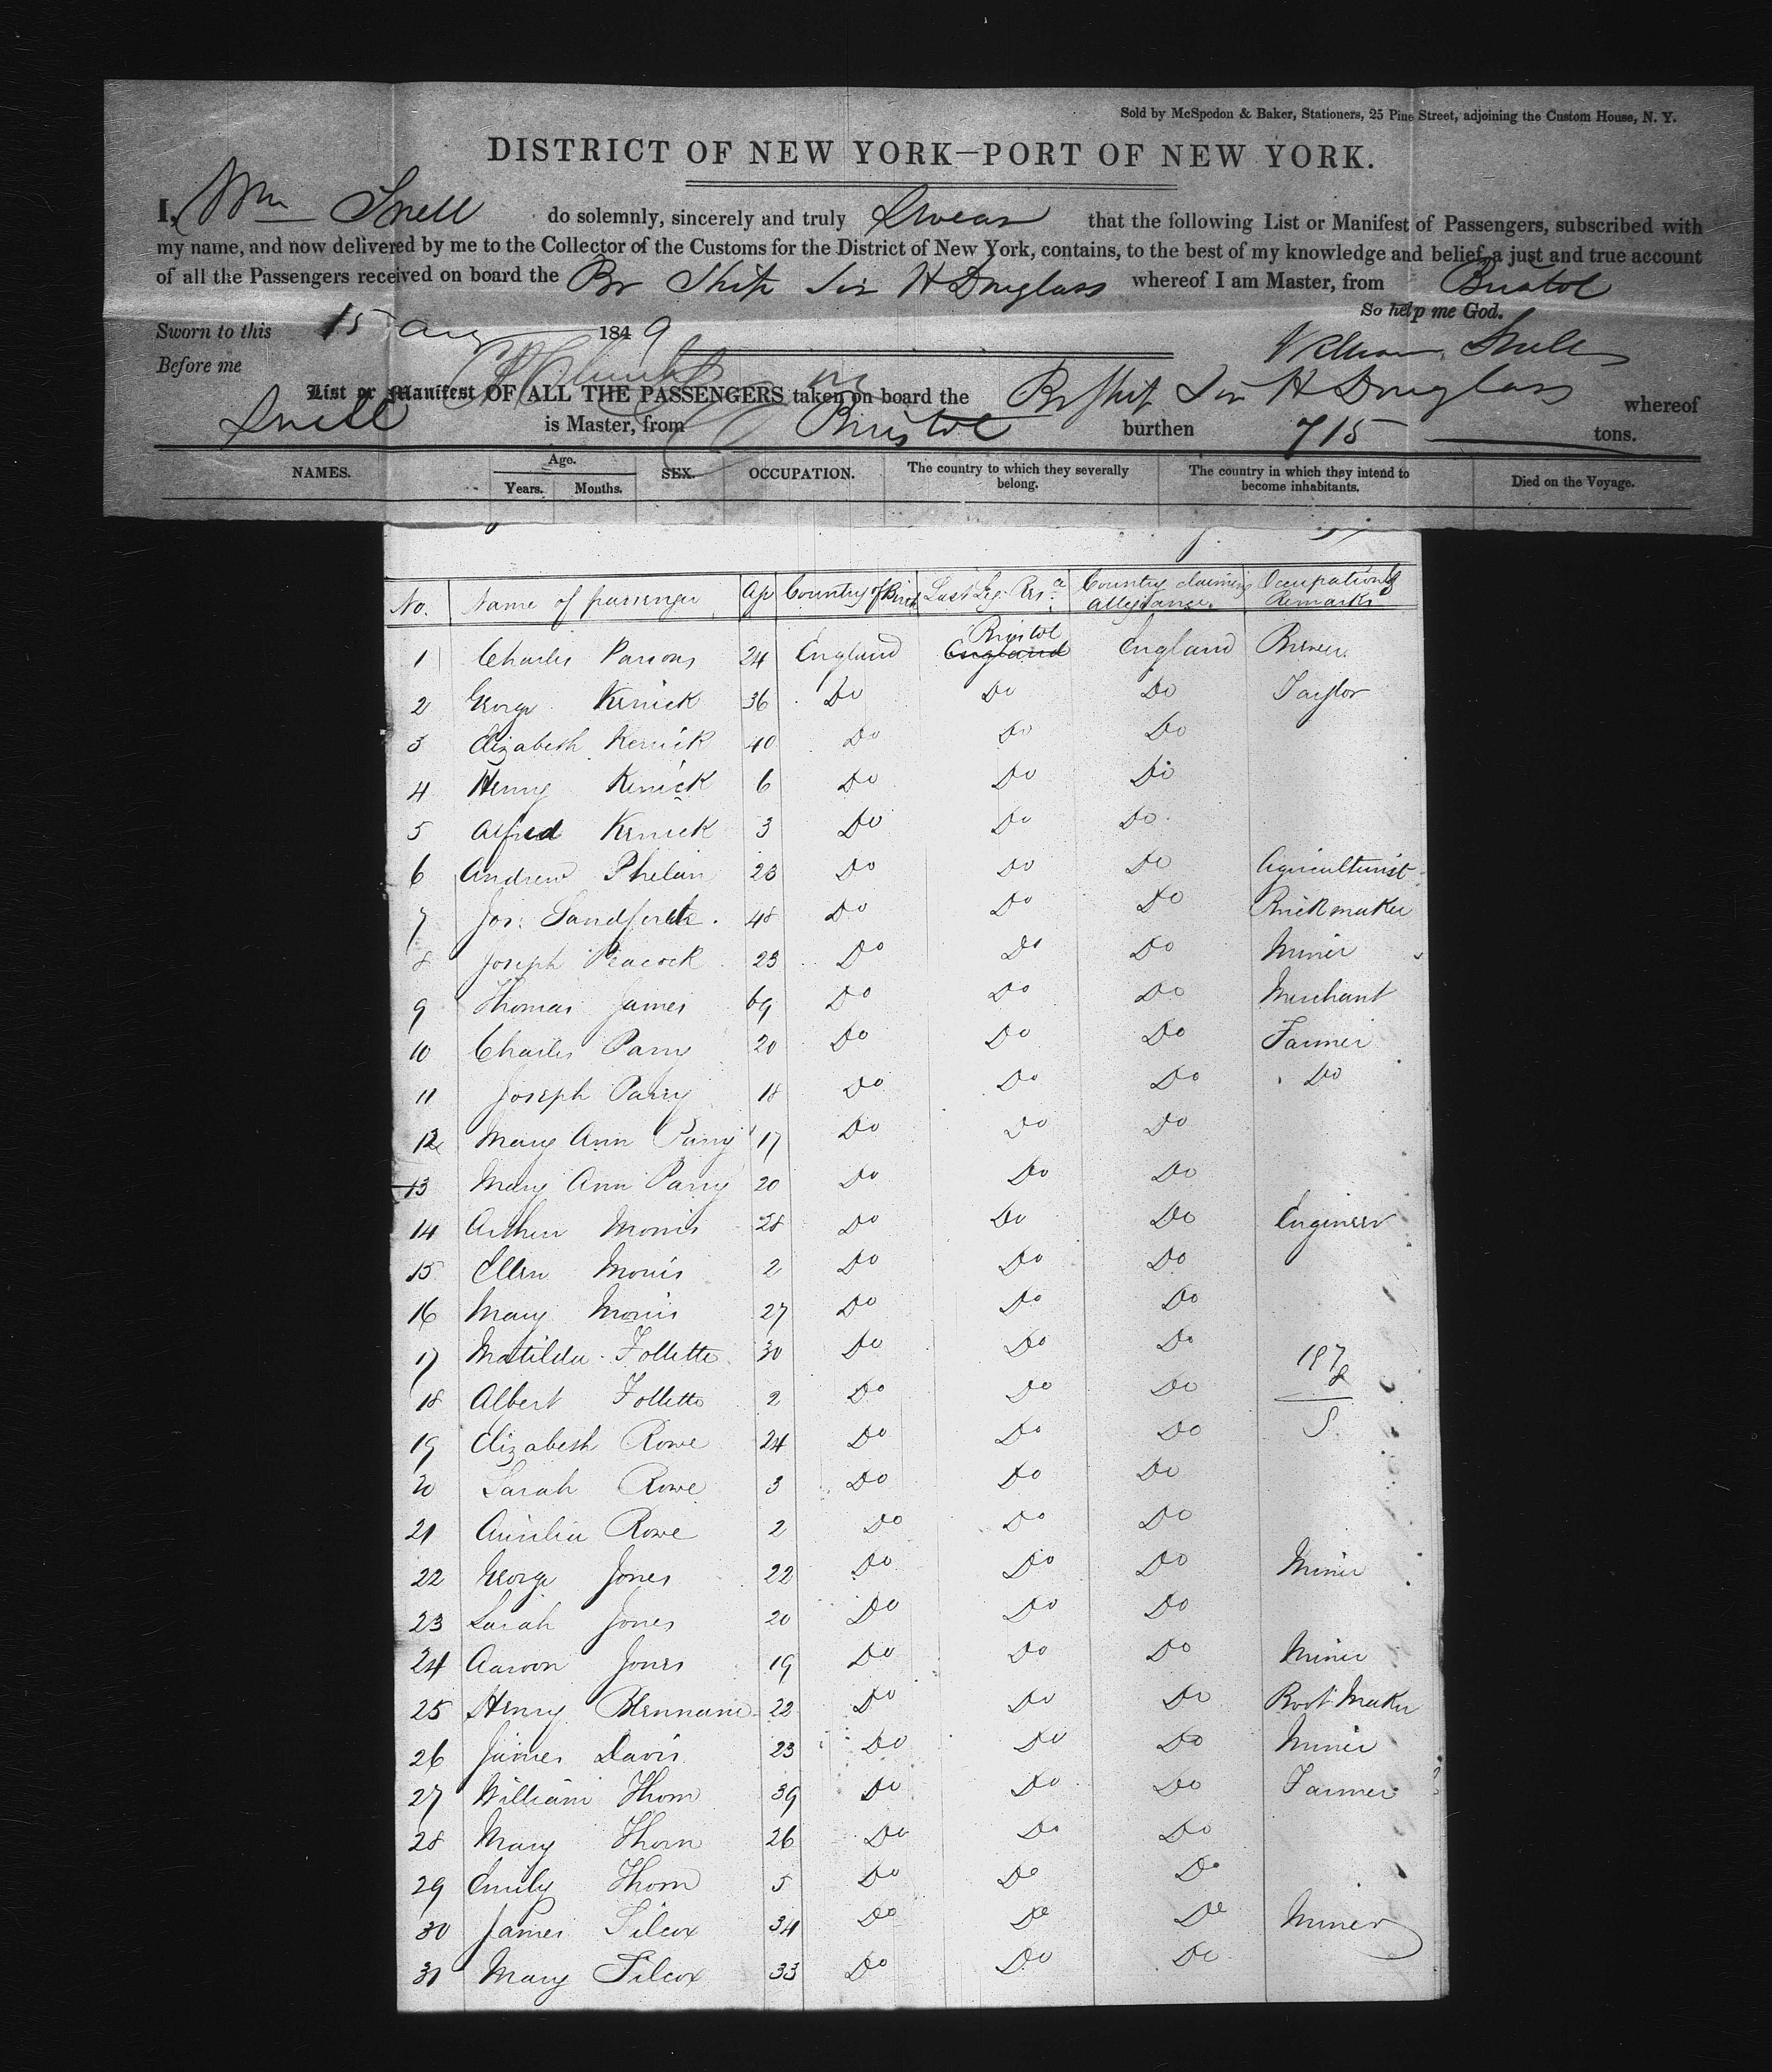 Sold by McSpedon & Baker, Stationers, 25 Pine Street, adjoining the Custom House, N. Y.
DISTRICT OF NEW YORK—PORT OF NEW YORK.
I, Wm Snell do solemnly, sincerely and truly Swear that the following List or Manifest of Passengers, subscribed with
my name, and now delivered by me to the Collector of the Customs for the District of New York, contains, to the best of my knowledge and belief, a just and true account
of all the Passengers received on board the Br Ship Sir H Douglass whereof I am Master, from Bristol
So help me God.
Sworn to this 15 Aug 1849
William Snell
Before me
List or Manifest OF ALL THE PASSENGERS taken on board the Br Ship Sir H Douglass whereof
Snell is Master, from Bristol burthen 715 tons.
NAMES. Age. Years. Months. SEX. OCCUPATION. The country to which they severally belong. The country in which they intend to become inhabitants. Died on the Voyage.
No. Name of passenger Age Country of Birth Last Leg. Res.ce Country claiming allegiance Occupation & Remarks
Bristol
1 Charles Parsons 24 England England England Brewer
2 George Kerrick 36 Do Do Do Taylor
3 Elizabeth Kerrick 40 Do Do Do
4 Henry Kerrick 6 Do Do Do
5 Alfred Kerrick 3 Do Do Do
6 Andrew Phelan 23 Do Do Do Agriculturist
7 Jos: 48 Do Do Do Brickmaker
8 Joseph Peacock 23 Do Do Do Miner
9 Thomas James 69 Do Do Do Merchant
10 Charles Parry 20 Do Do Do Farmer
11 Joseph Parry 18 Do Do Do Do
12 Mary Ann Parry 17 Do Do Do
13 Mary Ann Parry 20 Do Do Do
14 Arthur Morris 28 Do Do Do Engineer
15 Ellen Morris 2 Do Do Do
16 Mary Morris 27 Do Do Do
17 Matilda Follette 30 Do Do Do 197
18 Albert Follette 2 Do Do Do
19 Elizabeth Rowe 24 Do Do Do
20 Sarah Rowe 3 Do Do Do
21 Aurelia Rowe 2 Do Do Do
22 George Jones 22 Do Do Do Miner
23 Sarah Jones 20 Do Do Do
24 Aaron Jones 19 Do Do Do Miner
25 Henry 22 Do Do Do Boot Maker
26 James Davis 23 Do Do Do Miner
27 William Thorn 39 Do Do Do Farmer
28 Mary Thorn 26 Do Do Do
29 Emily Thorn 5 Do Do Do
30 James Silcox 34 Do Do Do Miner
31 Mary Silcox 33 Do Do Do